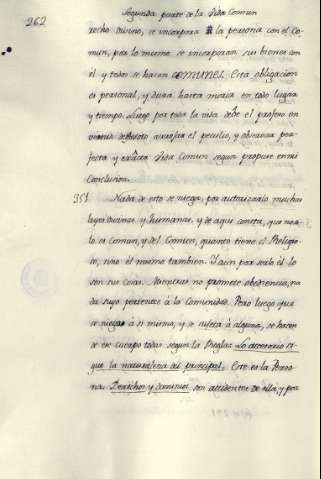 262
Segunda parte de la Vida Comun
recho Divino, se incorpora la persona con el Co-
mun, por lo mismo se incorporan sus bienes con
él y todos se hacen COMUNES. Esta obligacion
es personal, y dura hasta morir en todo lugar
y tiempo. Luego por toda la vida debe el profeso en
virtud del voto arrojar el peculio, y observar per-
fecta y exâcta Vida Comun segun propuse en mi
Conclusion.
351 Nada de esto se niega, por autorizarlo muchas
leyes Divinas y humanas, y de aqui consta, que no so-
lo es Comun, y del Comun, quanto tiene el Religio-
so, sino él mismo tambien. Y aun por serlo él lo
son sus cosas. Mientras no promete obediencia, na-
da suyo pertenece á la Comunidad. Pero luego que
se niega á si mismo, y se sujeta á alguna, se hacen
de ese cuerpo todas segun la Regla: Lo accesorio si-
gue la naturaleza del principal. Este es la Perso-
na. Derechos y dominios son accidentes de ella, y por